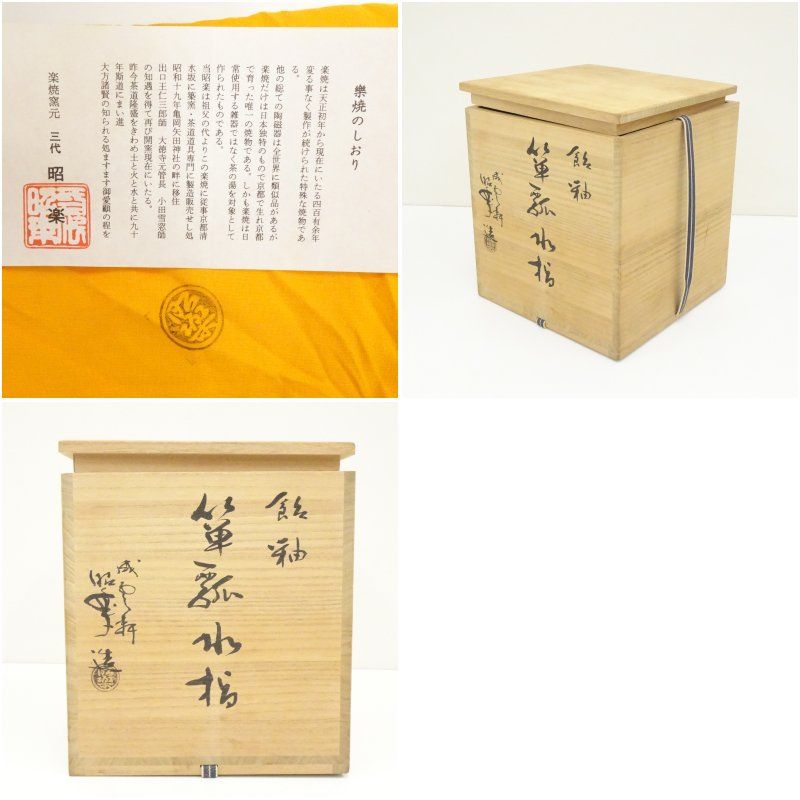 樂焼のしおり
楽焼は天正初年から現在にいたる四百有余年
変る事なく製作が続けられた特殊な焼物であ
る。
他の総ての陶磁器は全世界に類似品があるが
楽焼だけは日本独特のもので京都で生れ京都
で育った唯一の焼物である。しかも楽焼は日
常使用する雑器ではなく茶の湯を対象として
作られたものである。
当昭楽は祖父の代よりこの楽焼に従事京都清
水坂に築窯・茶道道具専門に製造販売せし処
昭和十九年亀岡矢田神社の畔に移住
出口王仁三郎師　大徳寺元管長　小田雪窓師
の知遇を得て再び開窯現在にいたる。
昨今茶道隆盛をきわめ土と火と水と共に九十
年斯道にまい進
大方諸賢の知られる処ますます御愛顧の程を
楽焼窯元　三代　昭楽
飴釉
箪瓢水指
昭楽造
飴釉
箪瓢水指
昭楽造